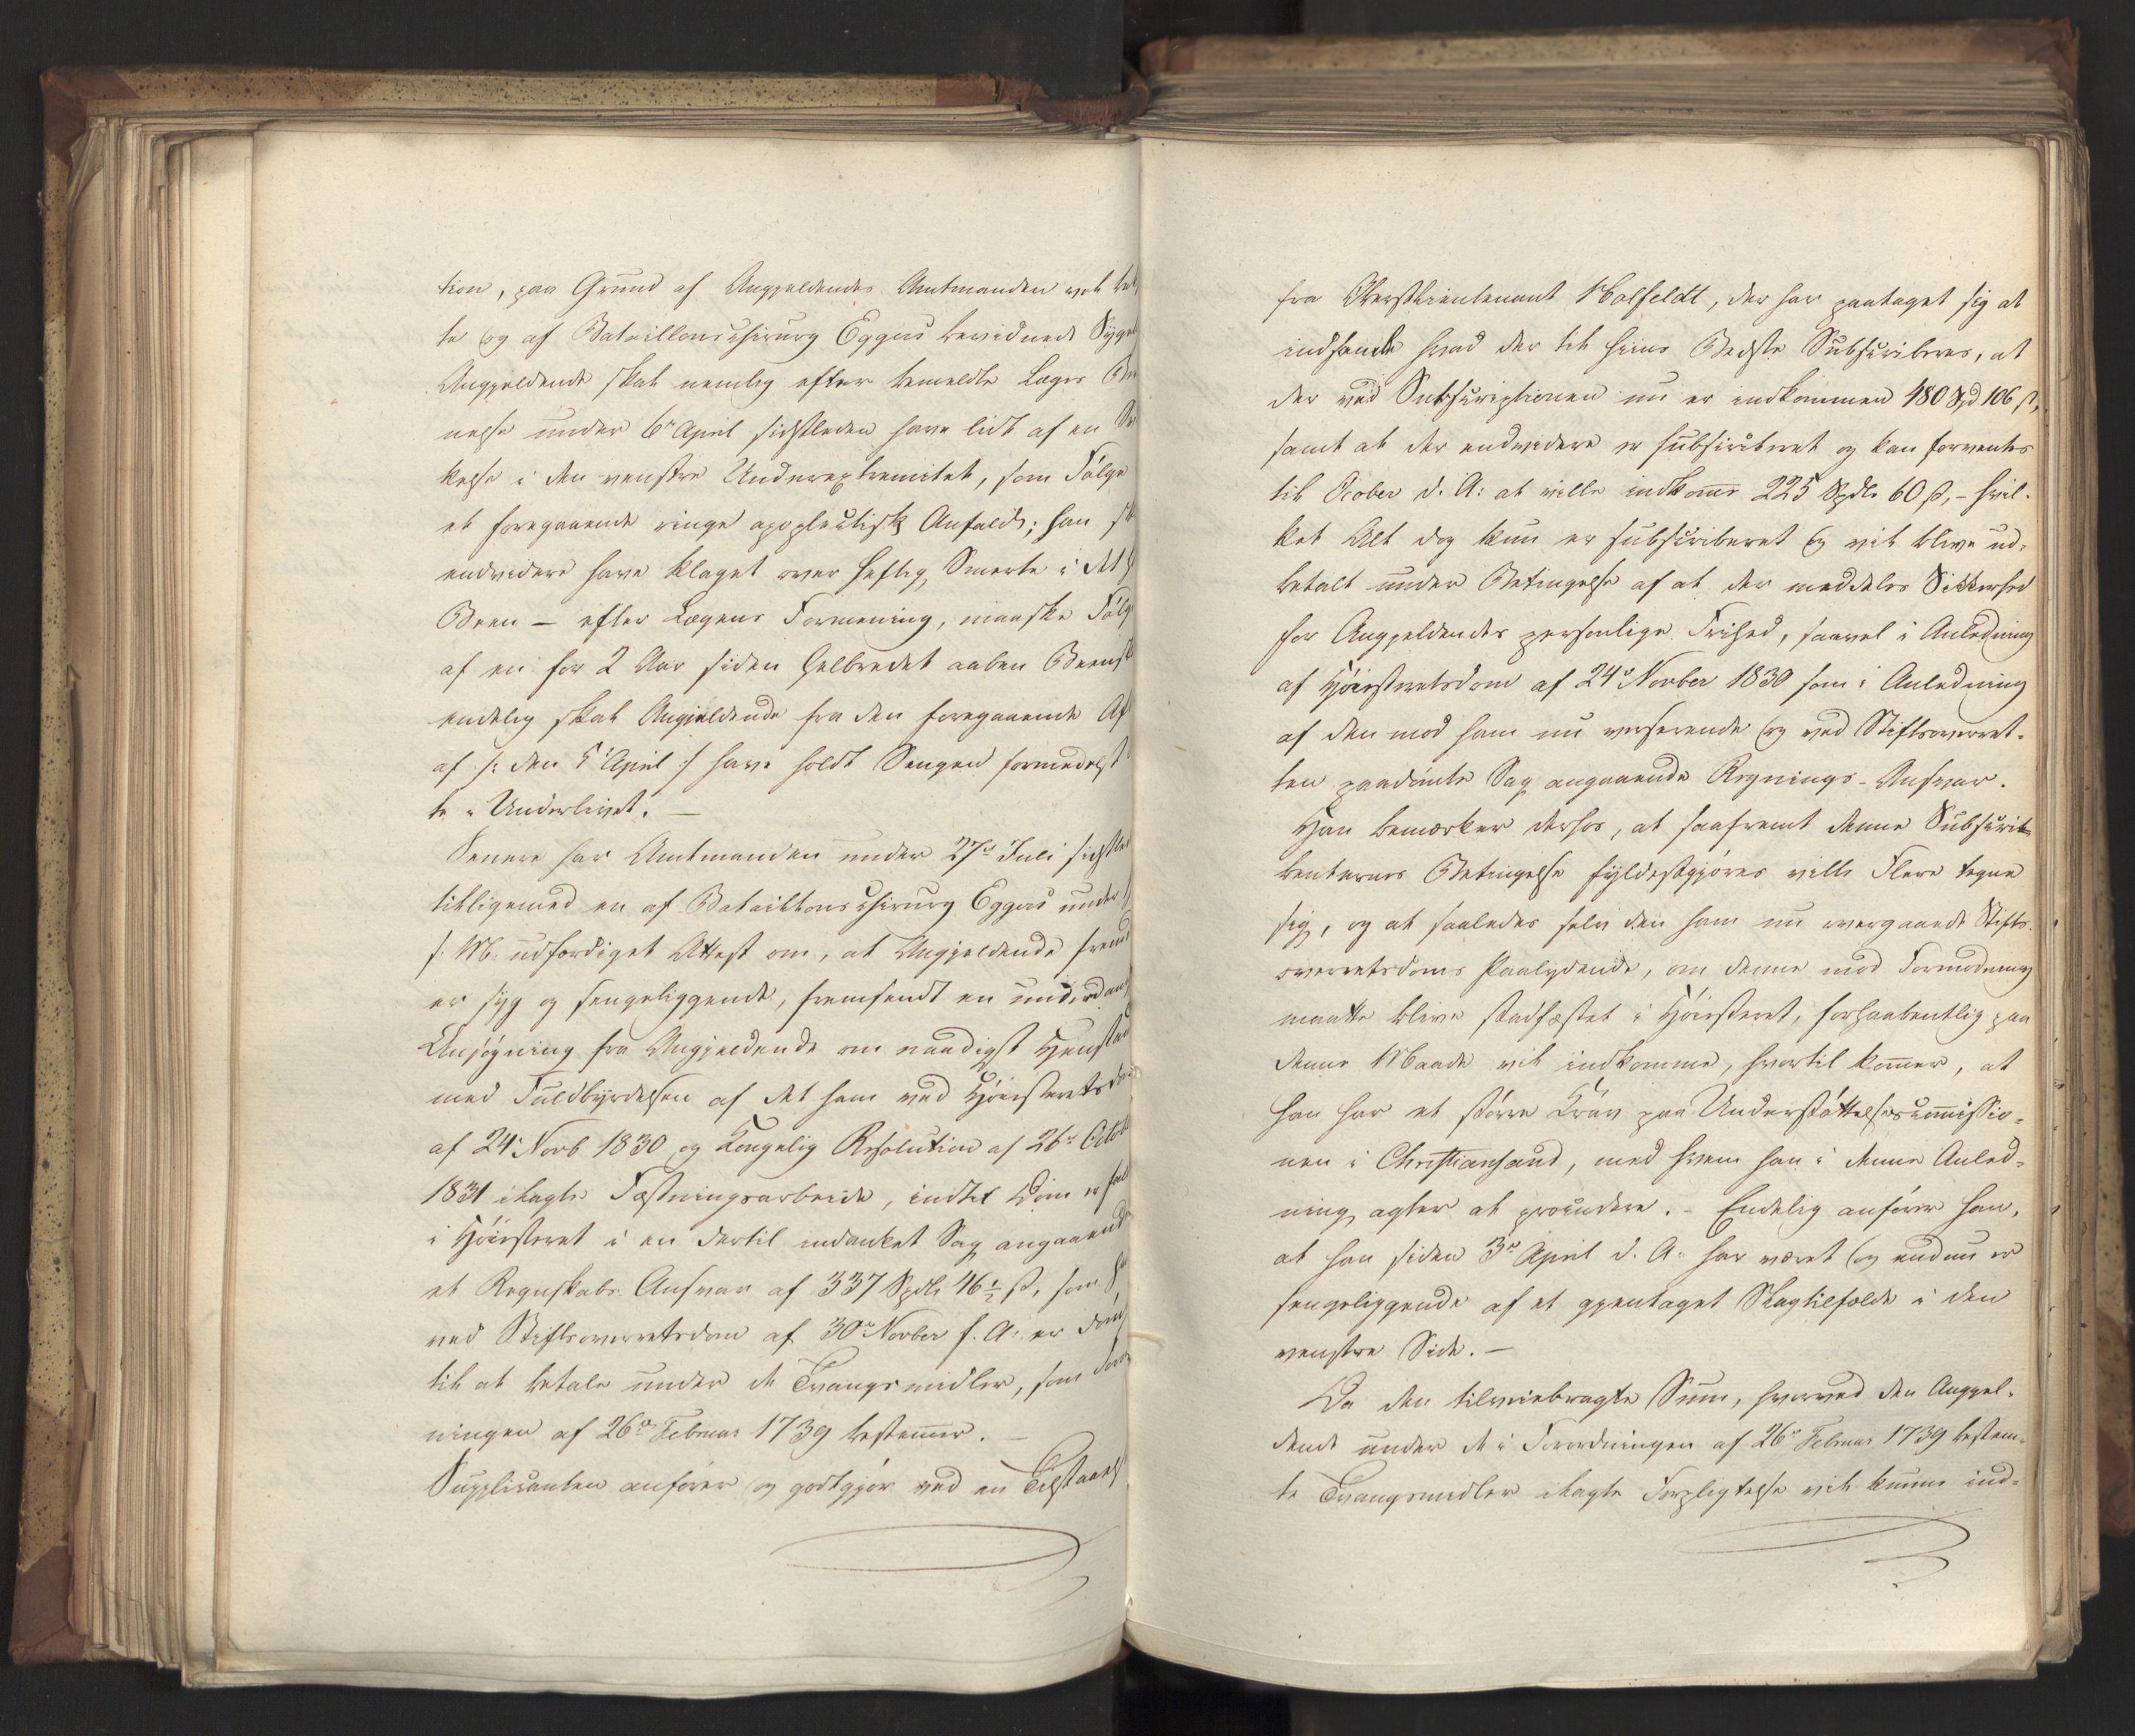 tion, paa Grund af Angjeldendes Amtmanden vel bek
te og af Bataillonschirurg Eggers bevidnede Syge
Angjeldende skal nemlig efter bemeldte Læges
nelse under 6te April sidstleden have lidt af en
kelse i den venstre Underextremitet, som Følge
et foregaaende ringe apoplectisk Anfald; han
endvidere have klaget over heftig Smerte i det
Been – efter Lægens Formening, maaske Følge
af en for 2 Aar siden helbredet aaben
endelig skal Angjeldende fra den foregaaende Af
af /: den 5te April :/ have holdt Sengen formedelst
te i Underlivet. –
Senere har Amtmanden under 27de Juli sidstle
tilligemed en af Bataillonschirurg Eggers under
s. M. udfærdiget Attest om, at Angjeldende frem
er syg og sengeliggende, fremsendt en underdan
Ansøgning fra Angjeldende om naadigst Henstand
med Fuldbyrdelsen af det ham ved Høiesterets
af 24de Novb 1830 og Kongelig Resolution af 26de Octob
1831 ilagte Fæstningsarbeide, indtil Dom er fal
i Høiesteret i en dertil indanket Sag angaaende
et Regnskabs Ansvar af 337 Spdlr 46½ ß, som
ved Stiftsoverretsdom af 30te Novber f. A. er døm
til at betale under de Tvangsmidler, som Foror
ningen af 26de Februar 1739 bestemmer. –
Supplicanten anfører og godtgjør ved en Tilstaaels
fra Oberstlieutenant Malfeldt, der har paataget sig at
indsamle hvad der til hiins Bedste Subscriberes, at
der ved Subscriptionen nu er indkommen 480 Spd 106 ß,
samt at der endvidere er subscriberet og kan forventes
til October d. A: at ville indkomme 225 Spdlr 60 ß, – hvil-
ket Alt dog kun er subscriberet og vil blive ud-
betalt under Betingelse af at der meddeles Sikkerhed
for Angjeldendes personlige Frihed, saavel i Anledning
af Høiesteretsdom af 24de Novber 1830 som i Anledning
af den mod ham nu verserende og ved Stiftsoverret-
ten paadømte Sag angaaende Regnings-Ansvar.
Han bemærker derhos, at saafremt denne Subscri-
benternes Betingelse fyldestgjøres ville Flere tegne
sig, og at saaledes selv den ham nu overgaaede Stifts-
overretsdoms Paalydende, om denne mod Formodning
maatte blive stadfæstet i Høiesteret, forhaabentlig paa
denne Maade vil indkomme, hvortil kommer, at
han har et større Krav paa Understøttelsescommissio-
nen i Christiansand, med hvem han i denne Anled-
ning agter at procedere. – Endelig anfører han,
at han siden 3de April d. A. har været og endnu er
sengeliggende af et gjentaget Slagtilfælde i den
venstre Side. –
Da den tilveiebragte Sum, hvorved den Angjel-
dende under de i Forordningen af 26de Februar 1739 bestem-
te Tvangsmidler ilagte Forpligtelse vil kunne ind-